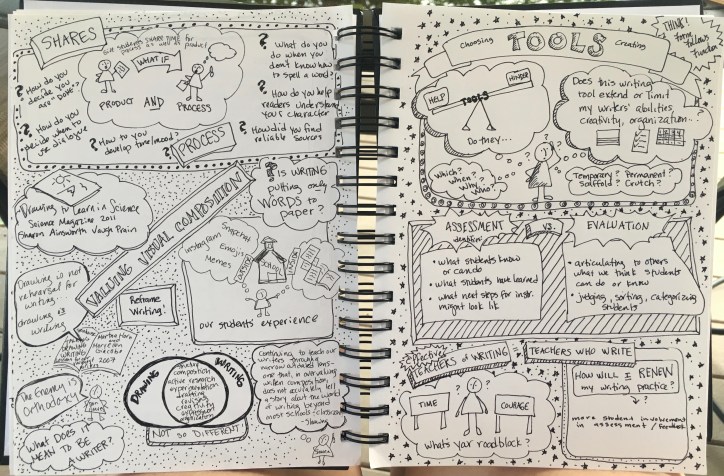 SHARES
Give students SHARE TIME for
process as well as product
WHAT IF
PRODUCT AND PROCESS
? How do you
decide you
are "done"?
? How do you
decide when to
use dialogue
? How to you
develop time/mood?
PROCESS
? What do you
do when you
don't know how
to spell a word?
? How do you help
readers understand
your character
? How did you find
reliable sources
Drawing to Learn in Science
Science Magazine 2011
Sharon Ainsworth Vaughn Prain
VALUING VISUAL COMPOSITION
? IS WRITING
putting only
WORDS to
paper?
Drawing is not
rehearsal for
writing...
drawing is
writing
Reframe
Writing!
Martha Horn
Mary Ellen
Giacobbe
2007
Instagram Snapchat
Emojis
Memes
SCHOOL
our students' experience
The Enemy is
Orthodoxy
DRAWING
WRITING
composition
active research
experimentation
creating
revising
NOT SO DIFFERENT
What DOES it
MEAN TO BE
A WRITER?
Continuing to teach our
writers through a
narrow alphabetic lens -
one that, in over valuing
written composition,
does not actually tell
a story about the world
of writing beyond
most schools - classrooms
- Shawna
Choosing TOOLS Creating
THINK!
form
follows
function
HELP
TOOLS
HINDER
Do they...
Does this writing
tool extend or limit
my writers' abilities,
creativity, organization...
Which?
When?
Why?
Who?
Temporary? Permanent?
Scaffold? Crutch?
ASSESSMENT
VS.
EVALUATION
• what students know
or can do
• what students have learned
• what next steps for instr.
might look lik
• articulating to others
what we think students
can do or know
• judging, sorting, categorizing
students
Effective
TEACHERS OF WRITING
TIME
COURAGE
What's your roadblock?
TEACHERS WHO WRITE
HOW WILL I RENEW
my writing practice?
?
more student involvement
in assessment / feedback